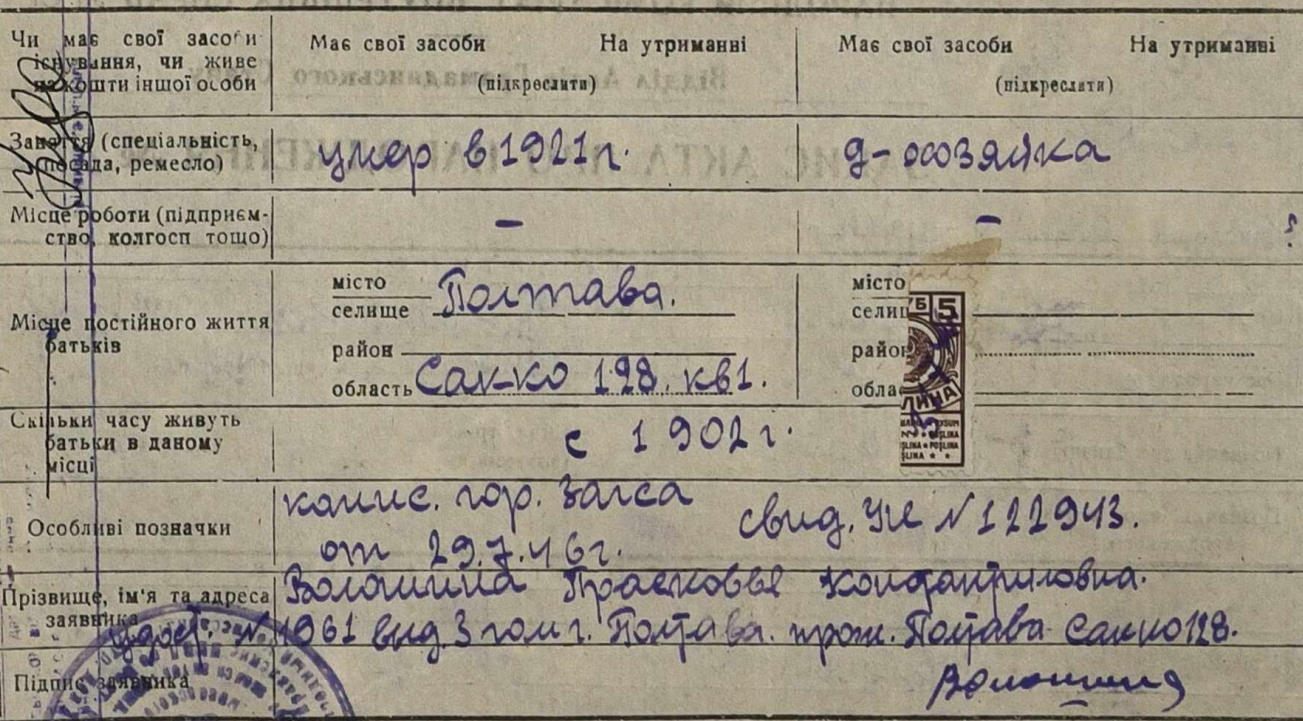 Чи має свої засоби існування, чи живе на кошти іншої особи
Має свої засоби На утриманні
(підкреслити)
Має свої засоби На утриманні
(підкреслити)
Заняття (спеціальність, посада, ремесло)
умер в 1921 г.
д-хозяйка
Місце роботи (підприємство, колгосп тощо)
–
–
Місце постійного життя батьків
місто
селище Полтава.
район
область Сакко 128. кв 1.
місто
район
5
Скільки часу живуть батьки в даному місці
с 1902 г.
Особливі позначки
комис. гор. Загса
от 29.7.46 г.
свид. УЖ N 122943.
Прізвище, ім'я та адреса заявника
Волошина Прасковья
удост. N 1961 выд 3 гом г. Полтава. прож. Полтава Сакко 128.
Підпис заявника
Волошина